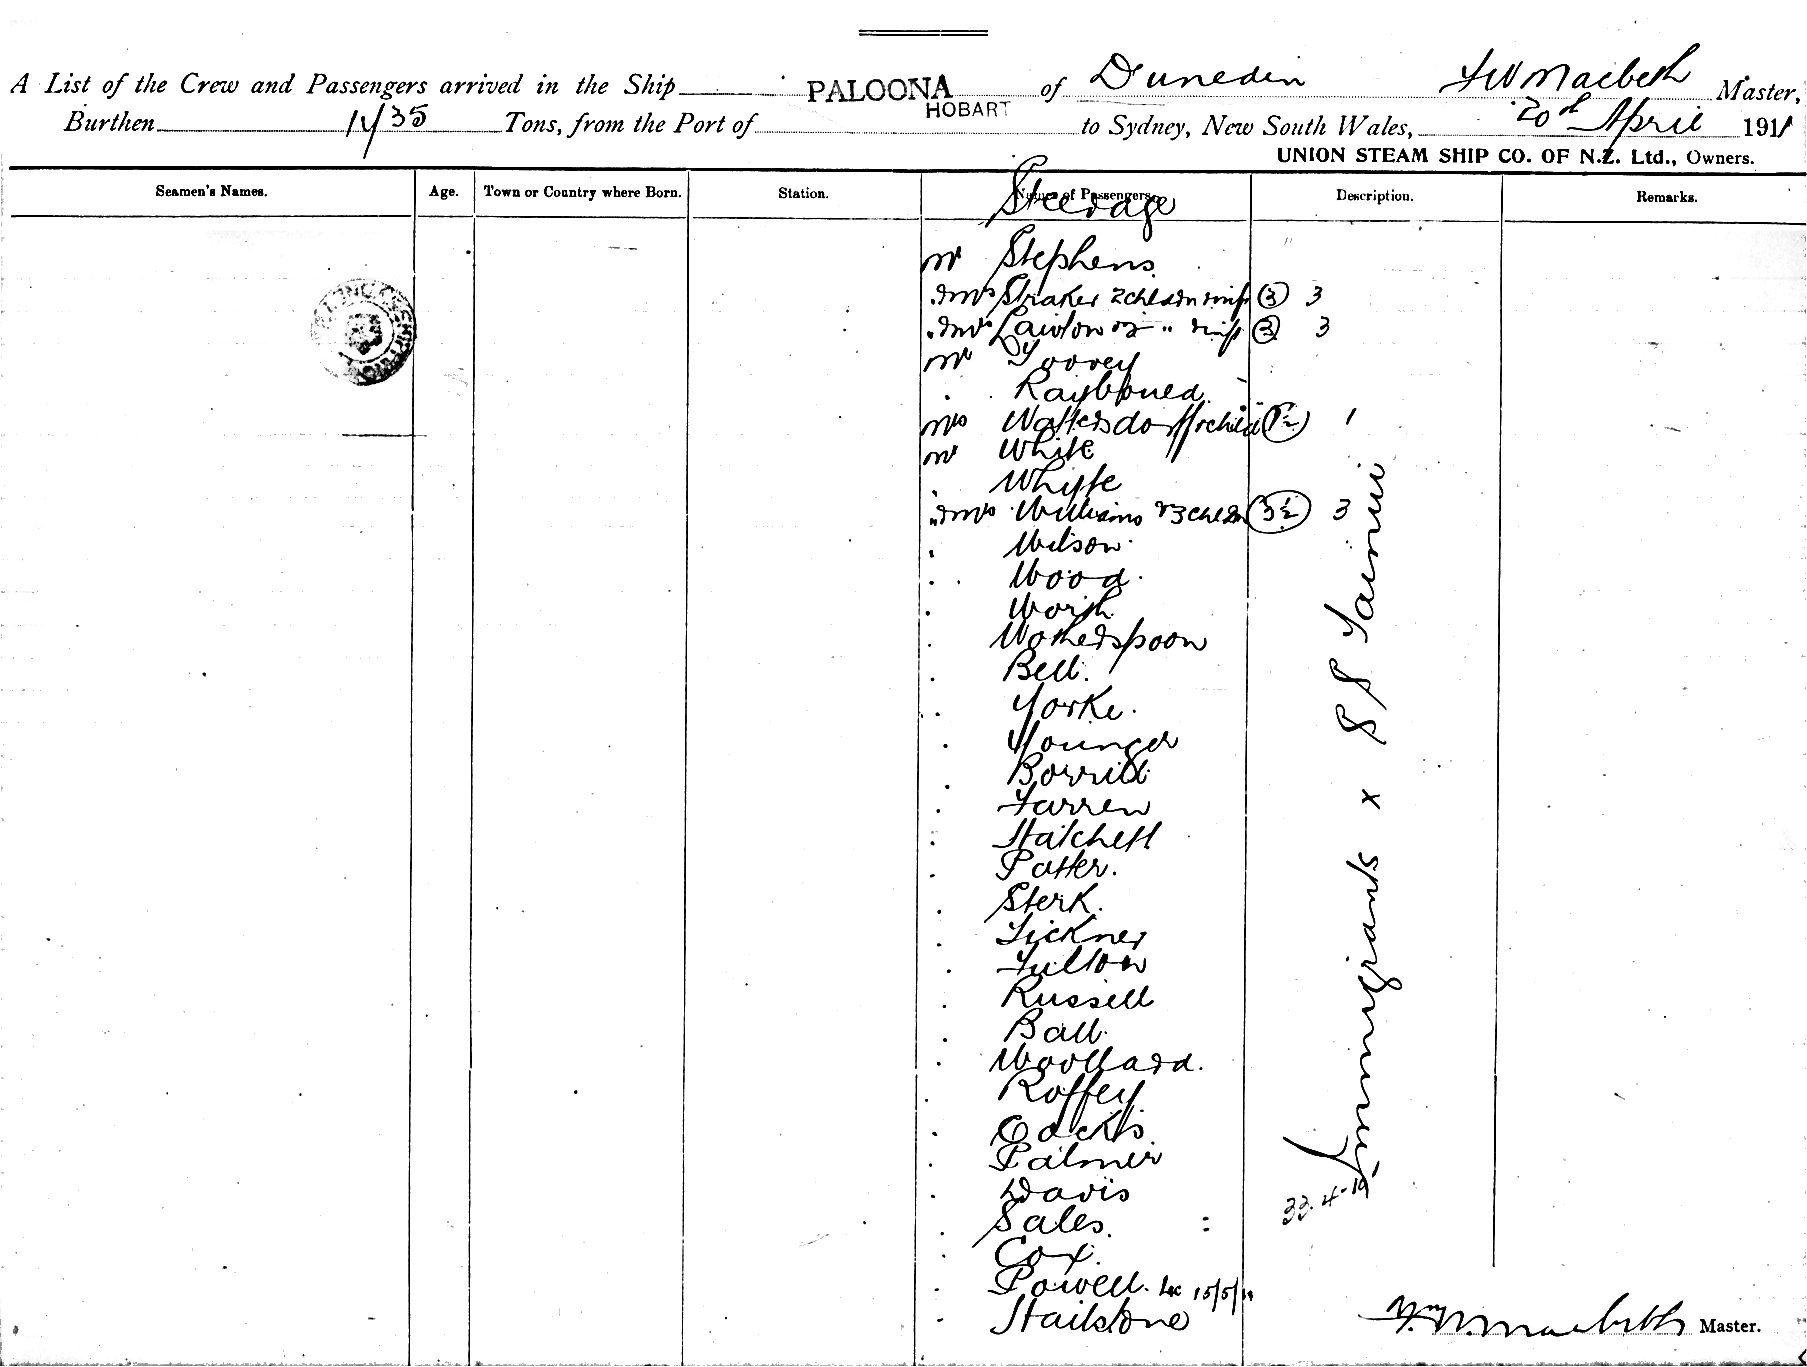 A List of the Crew and Passengers arrived in the Ship PALOONA of Dunedin F W Macbeth Master,
Burthen Tons, from the Port of HOBART to Sydney, New South Wales, 20th April 1911
UNION STEAM SHIP CO. OF N.Z. Ltd., Owners.
Seamen's Names. Age. Town or Country where Born. Station. Names of Passengers. Description. Remarks.
Steerage
Mr Stephens
" Mrs Straker 2 chldn & inft (3) 3
" Mrs Lawton & 2 " & inft (3) 3
Mr Toovey
Raybould
Mrs Wattersdorff & child (1½) 1
Mr White
Whyte
" Mrs Williams & 3 chldn (3½) 3
Wilson
Wood
Worth
Wotherspoon
Bell
Yorke
Younger
Borrill
Farren
Hatchett
Potter
Sterk
Tickner
Fulton
Russell
Ball
Woollard
Roffey
Cocks
Palmer
Davis
Sales
Cox
Powell 15/5/11
Hailstone
Immigrants x SS Tainui
33.4-
Master.